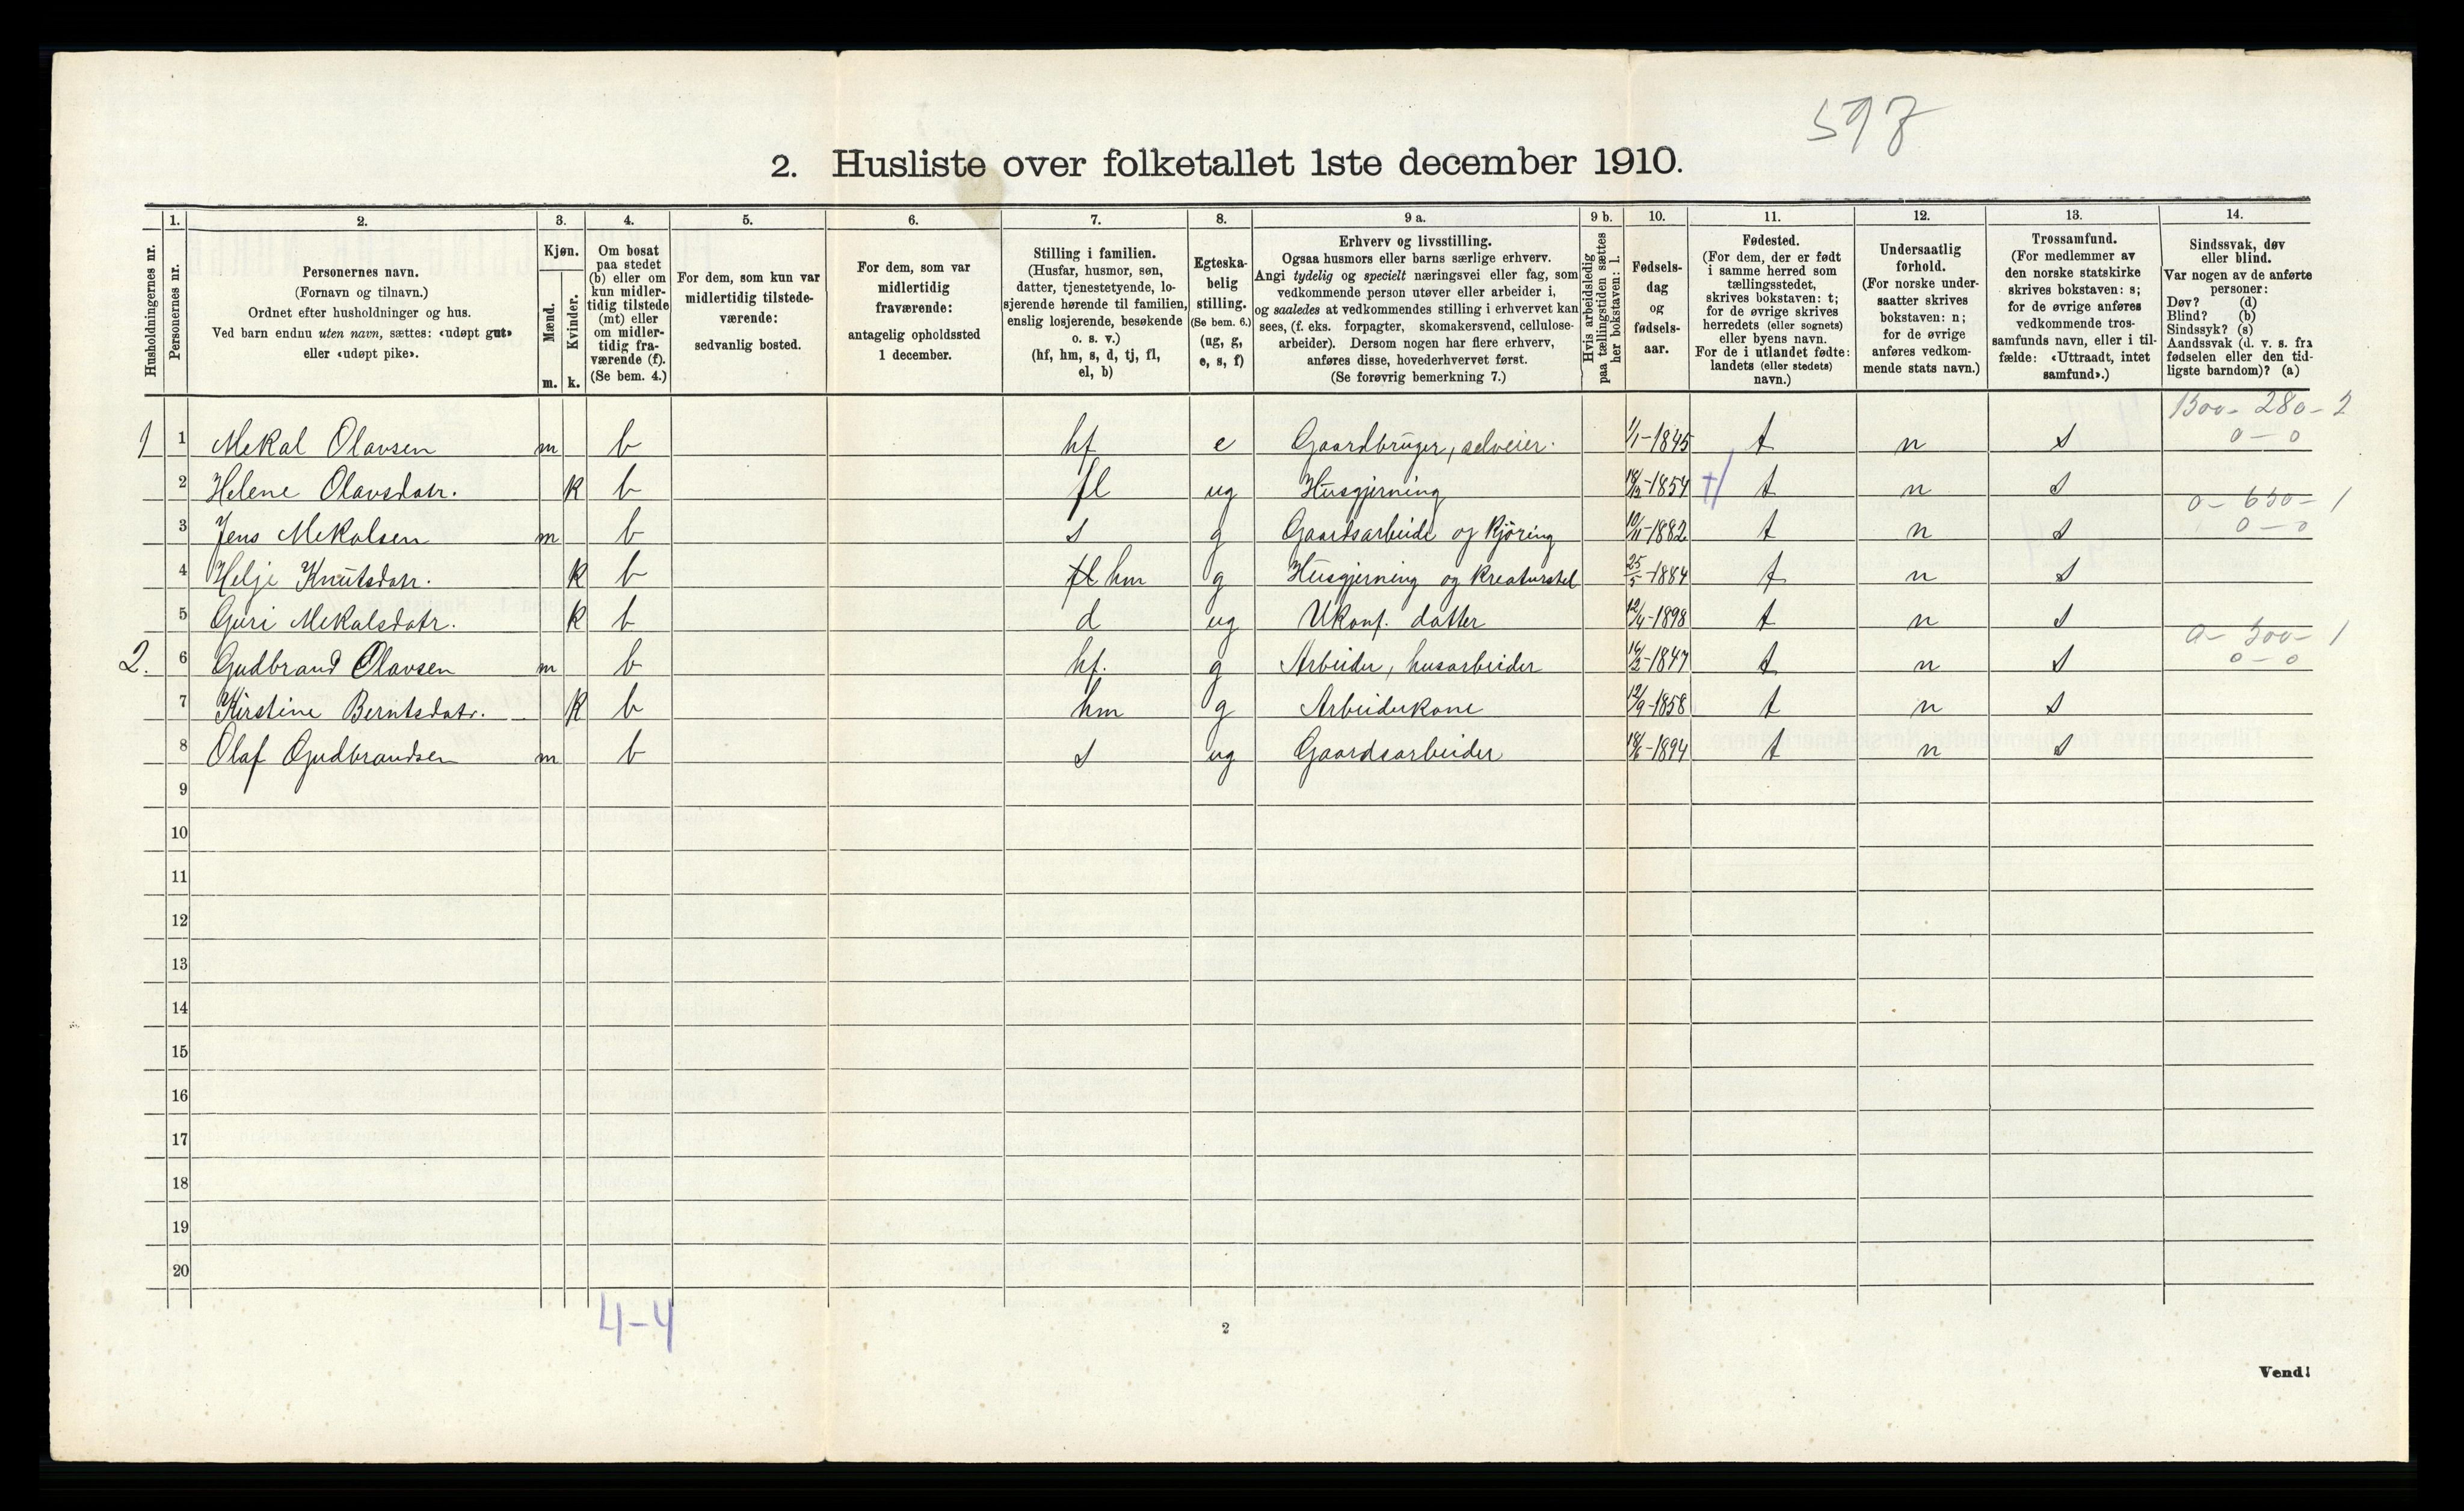 598
2. Husliste over folketallet 1ste december 1910.
Husholdningernes nr.
1.
Personernes nr.
2.
Personernes navn.
(Fornavn og tilnavn.)
Ordnet efter husholdninger og hus.
Ved barn endnu uten navn, sættes: «udøpt gut»
eller «udøpt pike».
3.
Kjøn.
Mænd.
Kvinder.
m. k.
4.
Om bosat
paa stedet
(b) eller om
kun midler-
tidig tilstede
(mt) eller
om midler-
tidig fra-
værende (f).
(Se bem. 4.)
5.
For dem, som kun var
midlertidig tilstede-
værende:
sedvanlig bosted.
6.
For dem, som var
midlertidig
fraværende:
antagelig opholdssted
1 december.
7.
Stilling i familien.
(Husfar, husmor, søn,
datter, tjenestetyende, lo-
sjerende hørende til familien,
enslig losjerende, besøkende
o. s. v.)
(hf, hm, s, d, tj, fl,
el, b)
8.
Egteska-
belig
stilling.
(Se bem. 6.)
(ug, g,
e, s, f)
9 a.
Erhverv og livsstilling.
Ogsaa husmors eller barns særlige erhverv.
Angi tydelig og specielt næringsvei eller fag, som
vedkommende person utøver eller arbeider i,
og saaledes at vedkommendes stilling i erhvervet kan
sees, (f. eks. forpagter, skomakersvend, cellulose-
arbeider). Dersom nogen har flere erhverv,
anføres disse, hovederhvervet først.
(Se forøvrig bemerkning 7.)
9 b.
Hvis arbeidsledig
paa tællingstiden sættes
her bokstaven: l.
10.
Fødsels-
dag
og
fødsels-
aar.
11.
Fødested.
(For dem, der er født
i samme herred som
tællingsstedet,
skrives bokstaven: t;
for de øvrige skrives
herredets (eller sognets)
eller byens navn.
For de i utlandet fødte:
landets (eller stedets)
navn.)
12.
Undersaatlig
forhold.
(For norske under-
saatter skrives
bokstaven: n;
for de øvrige
anføres vedkom-
mende stats navn.)
13.
Trossamfund.
(For medlemmer av
den norske statskirke
skrives bokstaven: s;
for de øvrige anføres
vedkommende tros-
samfunds navn, eller i til-
fælde: «Uttraadt, intet
samfund».)
14.
Sindssvak, døv
eller blind.
Var nogen av de anførte
personer:
Døv? (d)
Blind? (b)
Sindssyk? (s)
Aandssvak (d. v. s. fra
fødselen eller den tid-
ligste barndom)? (a)
1500- 280- 2
1 1 Mekal Olavsen m b hf e Gaardbruger, selveier. 1/1-1845 t n s 0-0
2 Helene Olavsdatr. k b fl ug Husgjerning t n s
0- 650- 1
3 Jens Mekalsen m b s g Gaardsarbeide og kjøring 10/11-1882 t n s 0-0
4 Helje Knutsdatr. k b fl hm g Husgjerning og kreaturstel 25/5-1884 t n s
5 Guri Mekalsdatr. k b d ug Ukonf. datter 12/4-1898 t n s
0- 500- 1
2. 6 Gudbrand Olavsen m b hf. g Arbeider, husarbeider t n s 0-0
7 Kirstine Berntsdatr. k b hm g Arbeiderkone 12/9-1858 t n s
8 Olaf Gudbrandsen m b s ug Gaardsarbeider 18/6-1894 t n s
9
10
11
12
13
14
15
16
17
18
19
20
4-4
2
Vend!